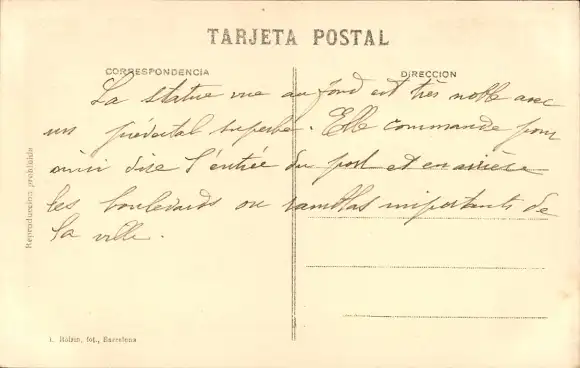 TARJETA POSTAL
CORRESPONDENCIA
DIRECCION
La statue vue au fond est très noble avec
un piédestal superbe. Elle commande pour
ainsi dire l'entrée du port et en arrière
les boulevards ou ramblas importants de
la ville.
Reproduccion prohibida
L. Roisin, fot., Barcelona